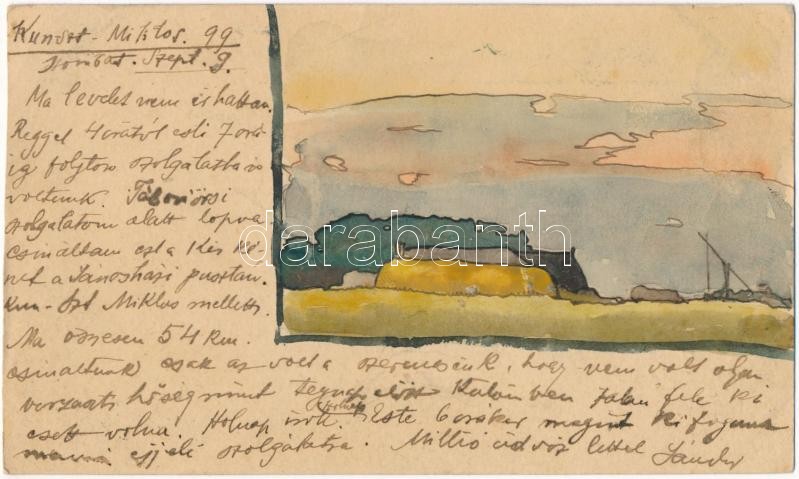 Kunszt-Miklos. 99
Szombat. Szept. 9.
Ma levelet nem írhattam.
Reggel 4 órától esti 7 órá-
ig folyton szolgálatba
voltunk. Táborőrsi
szolgálatom alatt lopva
csináltam ezt a kis ké-
pet a Jánosházi pusztán.
Kun-Szt Miklos mellett.
Ma összesen 54 km.
csináltunk csak az volt a szerencsénk, hogy nem volt olyan
hőség mint tegnap előtt Különben talán fele ki
esett volna. Holnap írok. Este 6 órakor megint ki
éjjeli szolgálatra. Millió üdvözlettel Sándor
darabanth
.com